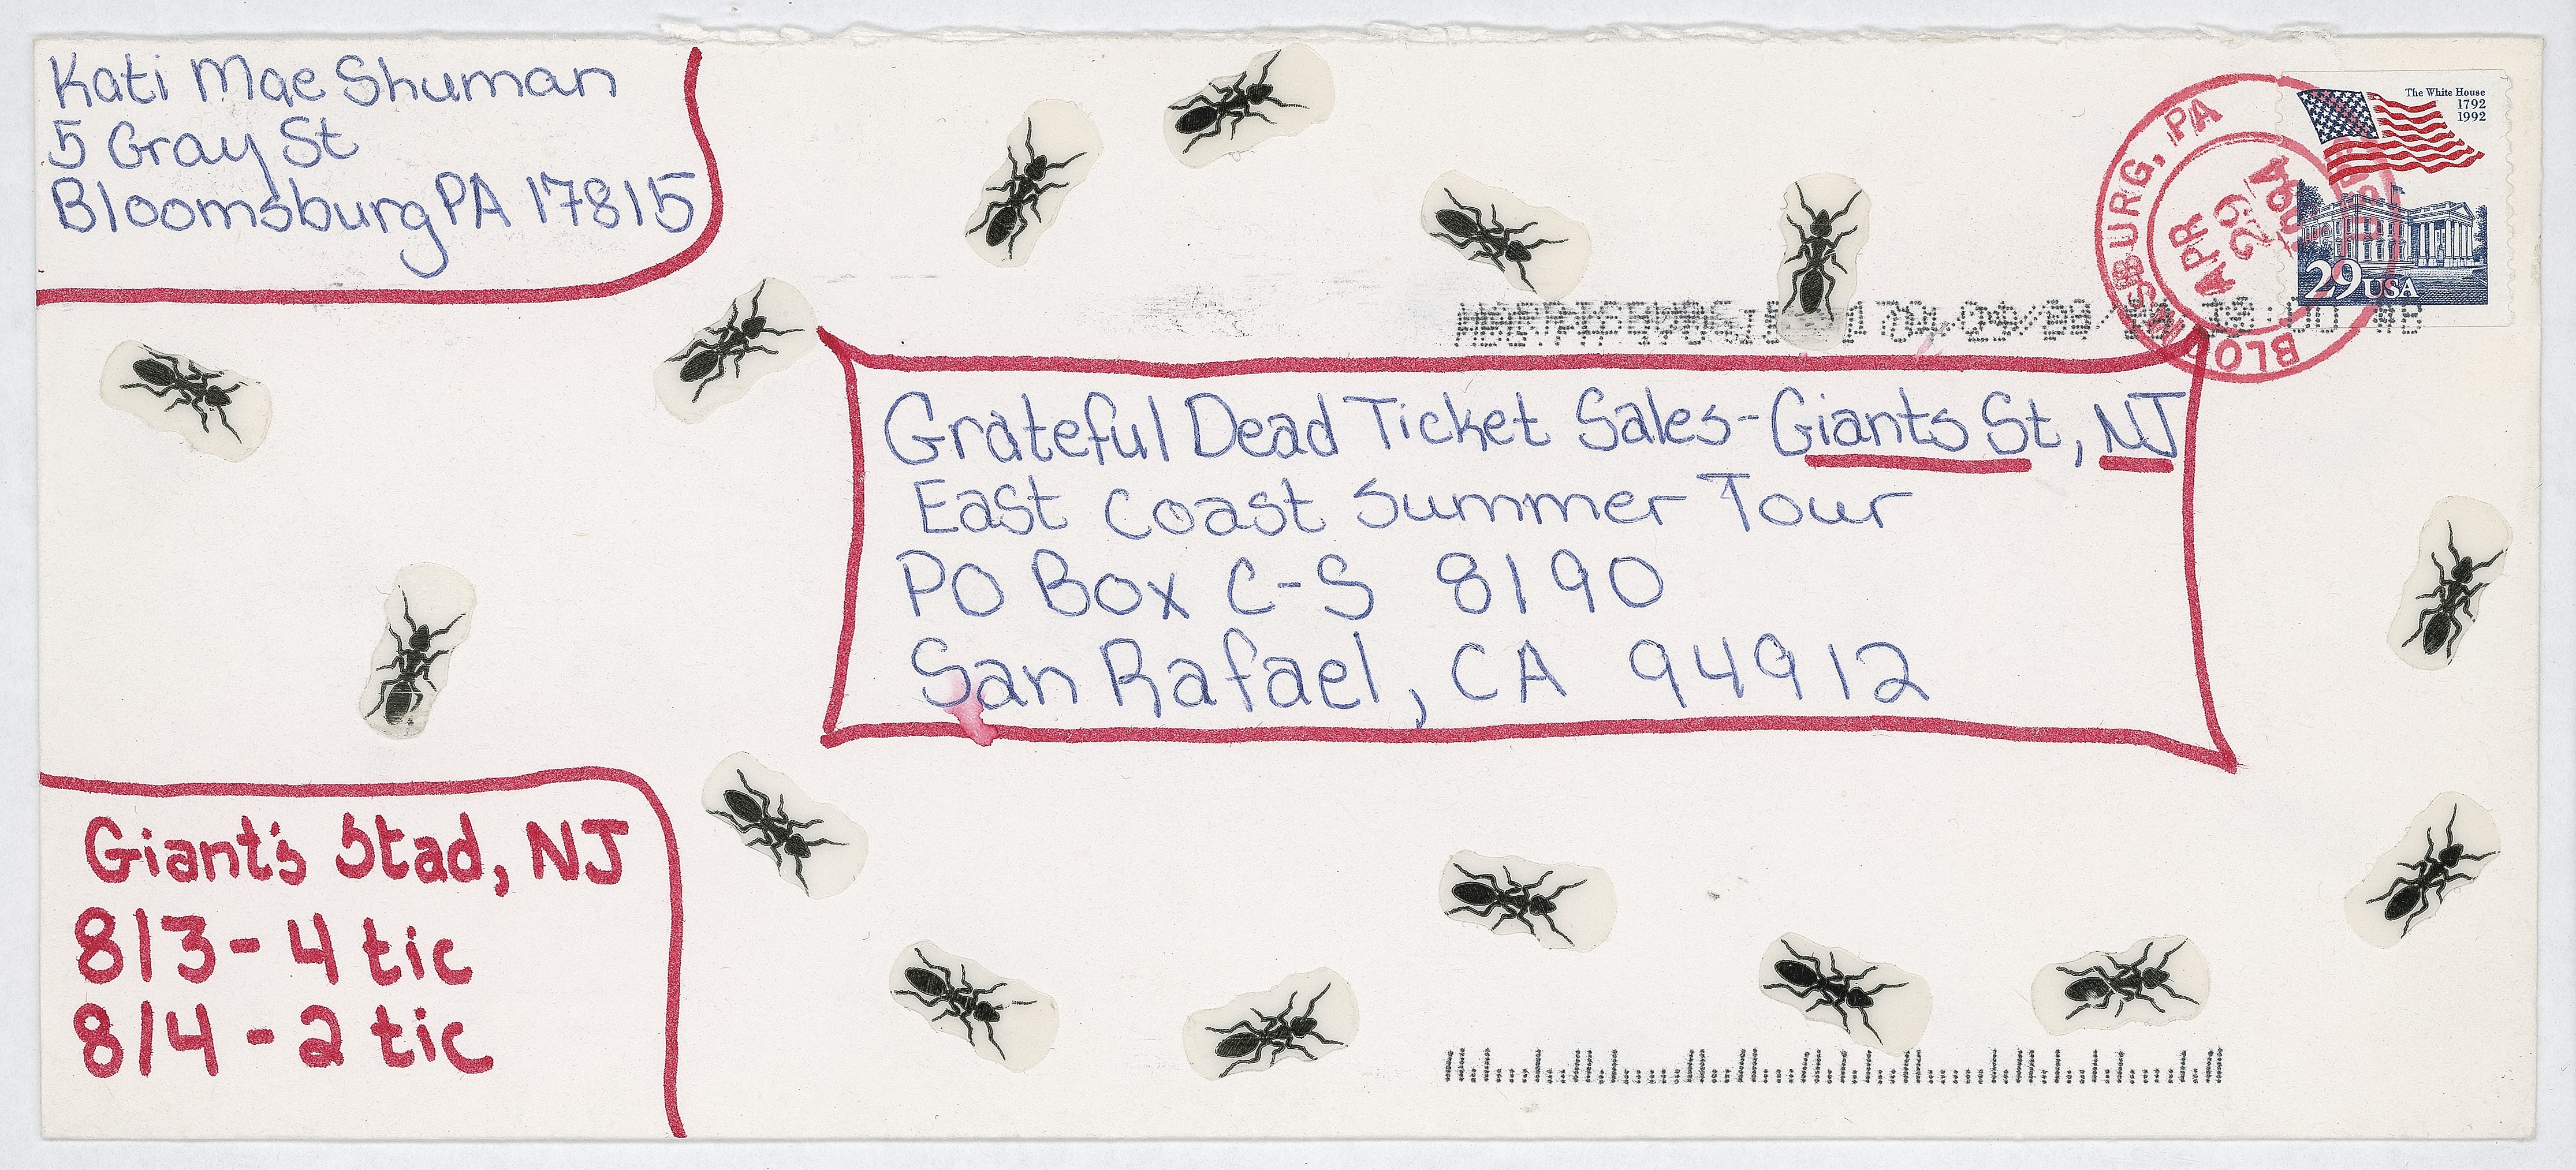 Kati Mae Shuman
5 Gray St
Bloomsburg PA 17815
The White House
1792
1992
29 USA
BLOOMSBURG, PA
APR
29
1994
Grateful Dead Ticket Sales-Giants St, NJ
East Coast Summer Tour
PO Box C-S 8190
San Rafael, CA 94912
Giant's Stad, NJ
8/3 - 4 tic
8/4 - 2 tic